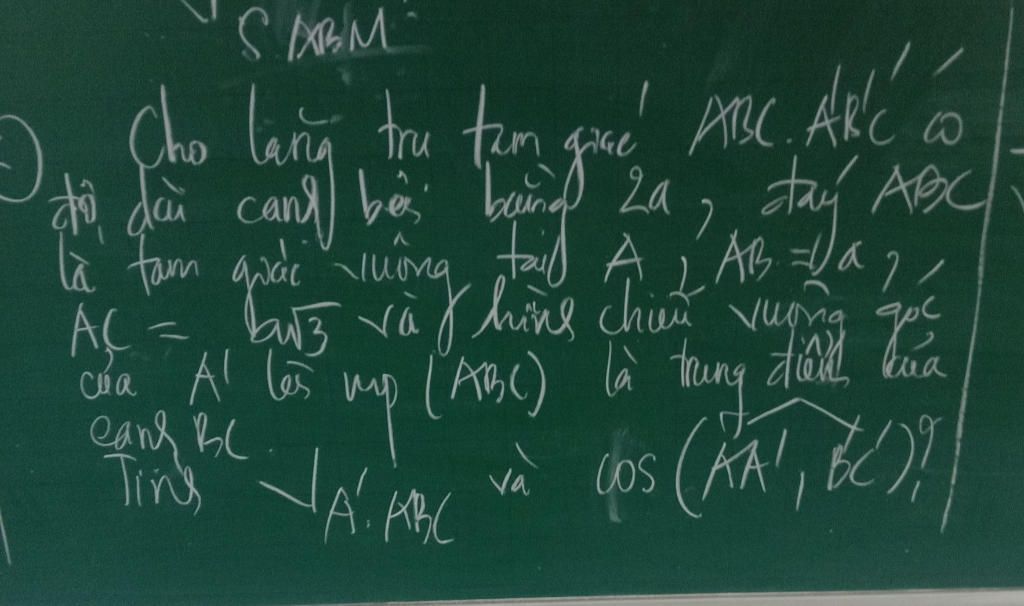 S ABM
Cho lăng trụ tam giác ABC.A'B'C' có
độ dài cạnh bên bằng 2a, đáy ABC
là tam giác vuông tại A, AB = a,
AC = a√3 và hình chiếu vuông góc
của A' lên mp (ABC) là trung điểm của
cạnh BC.
Tính V A'.ABC và cos (AA', B'C')?